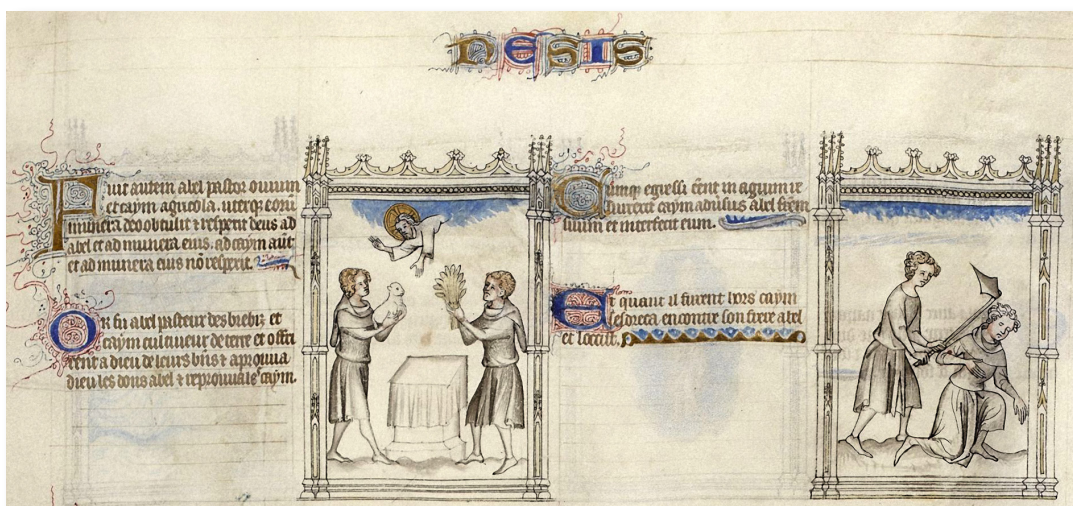 NESIS
Fuit autem abel pastor ouium
et caym agricola. uterq; 
munera deo obtulit ⁊ respexit deus ad
abel et ad munera eius. ad caym aut
et ad munera eius nō respexit.
Or fu abel pasteur des brebiz et
caym cultiueur de terre et offri
rent a dieu de leurs biens ⁊ aprouua
dieu les dons abel ⁊ reprouua le caym.
Cumq; egressi eēnt in agrum 
caym aduersus abel fratrem
suum et interfecit eum.
Et quant il furent hors caym
se dreca encontre son frere abel
et loccist.